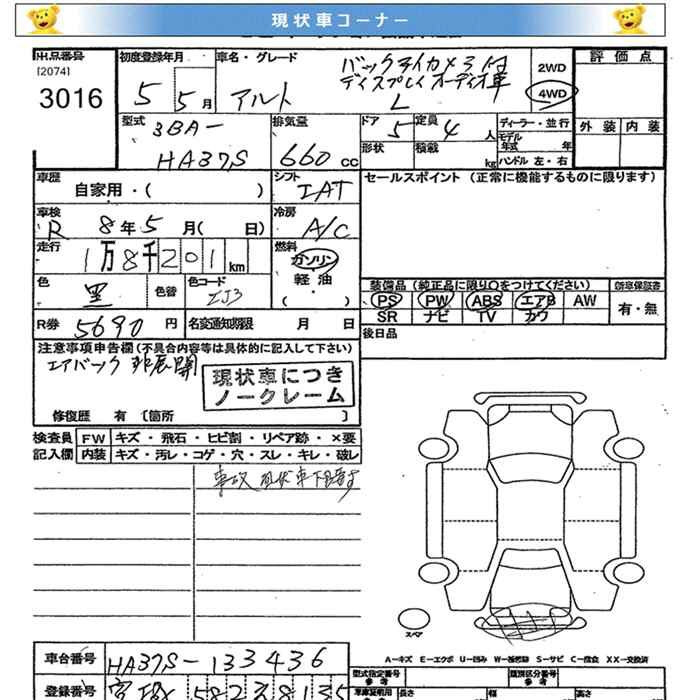 現状車コーナー
出品番号
[2074]
3016
初度登録年月
5 5月
車名・グレード
アルト
バックアイカメラ付
ディスプレイオーディオ車
L
2WD
4WD
評価点
外装 内装
型式
3BA-
HA37S
排気量
660 cc
ドア 5
定員 4 人
形状
積載 kg
ディーラー・並行
モデル年式 年
ハンドル 左・右
車歴
自家用・( )
シフト
IAT
セールスポイント (正常に機能するものに限ります)
車検
R 8年5月( 日)
冷房
A/C
走行
1万8千201km
燃料
ガソリン
軽油
・( )
色
黒
色替
色コード
ZJ3
装備品 (純正品に限り○をつけてください)
PS PW ABS エアB AW
SR ナビ TV カワ
新車保証書
有・無
R券 5690 円
名変通知期限 月 日
後日品
注意事項申告欄 (不具合内容等は具体的に記入して下さい)
エアバック 非展開
現状車につき
ノークレーム
修復歴 有 〔箇所 〕
検査員 FW キズ・飛石・ヒビ割・リペア跡・×要
記入欄 内装 キズ・汚レ・コゲ・穴・スレ・キレ・破レ
事故 現状車
スペア
A-キズ E-エクボ U-凹み W-補修跡 S-サビ C-腐食 XX-交換済
車台番号 HA37S-133436
登録番号
型式指定番号
参考
類別区分番号
参考
長さ
幅
高さ